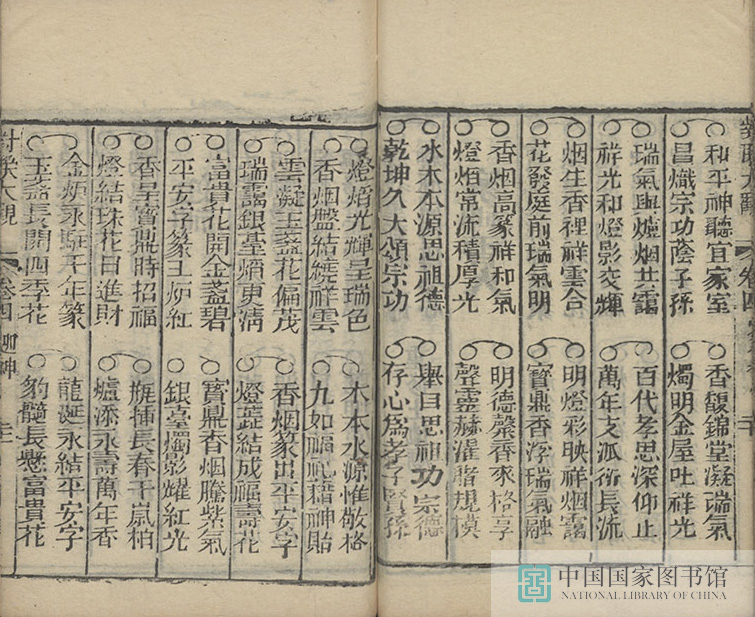 和平神聽宜家室
昌熾宗功蔭子孫
香馥錦堂凝瑞氣
燭明金屋吐祥光
瑞氣與爐烟共靄
祥光和燈影交輝
百代孝思深仰止
萬年支派衍長流
烟生香裡祥雲合
花發庭前瑞氣明
明燈彩映祥烟靄
寶鼎香浮瑞氣融
香烟高篆祥和氣
燈焰常流積厚光
明德馨香來格享
聲靈赫濯規模
水木本源思祖德
乾坤久大頌宗功
舉目思祖功宗德
存心為孝子賢孫
燈焰光輝呈瑞色
香烟盤結繞祥雲
木本水源惟敬格
九如福祉藉神貽
雲凝玉盞花偏茂
瑞靄銀臺焰更清
香烟篆出平安字
燈蕊結成福壽花
富貴花開金盞碧
平安字篆玉炉紅
寶鼎香烟騰紫氣
銀臺燭影耀紅光
香呈寶鼎時招福
燈結珠花日進財
瓶插長春千歲柏
爐添永壽萬年香
金炉永駐千年篆
玉盞長開四季花
龍涎永結平安字
豹髓長懸富貴花
對聯大觀 卷四
中国国家图书馆
NATIONAL LIBRARY OF CHINA